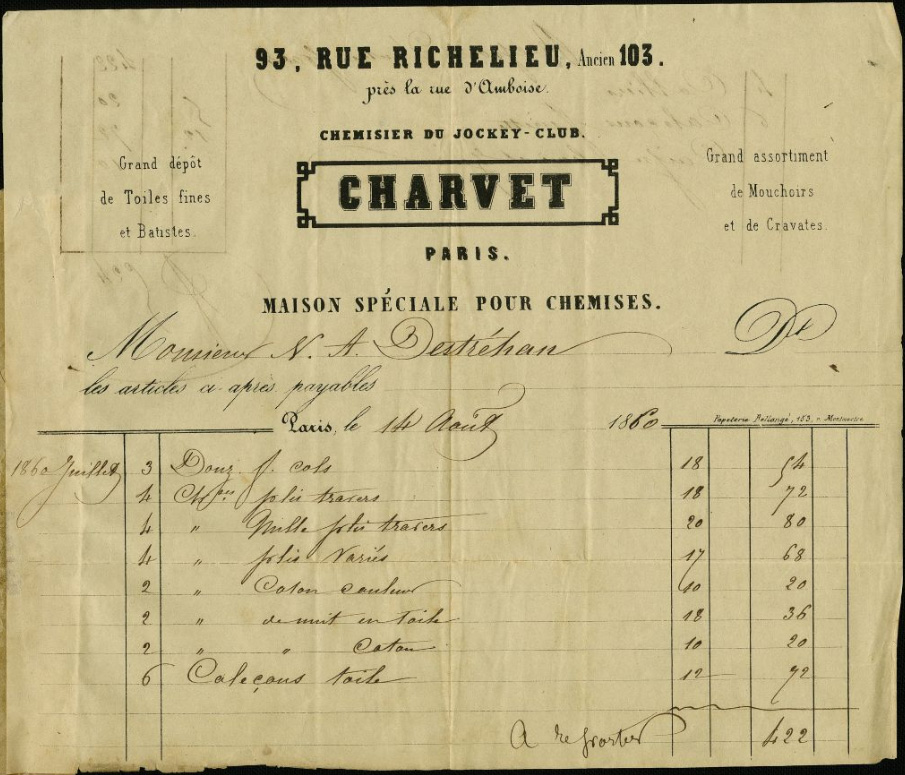 93, RUE RICHELIEU, Ancien 103.
près la rue d'Amboise.
CHEMISIER DU JOCKEY-CLUB.
Grand dépôt
de Toiles fines
et Batistes.
CHARVET
Grand assortiment
de Mouchoirs
et de Cravates.
PARIS.
MAISON SPÉCIALE POUR CHEMISES.
Monsieur N. A. Destréhan Dt
les articles ci-après payables
Paris, le 14 Août 1860
Papeterie Bellangé, 153, r. Montmartre
1860 Juillet 3 Douz. f. cols 18 54
4 Ch.ses plis travers 18 72
4 " Mille plis travers 20 80
4 " plis variés 17 68
2 " Coton couleur 10 20
2 " de nuit en toile 18 36
2 " " Coton 10 20
6 Caleçons toile 12 72
A reporter 422